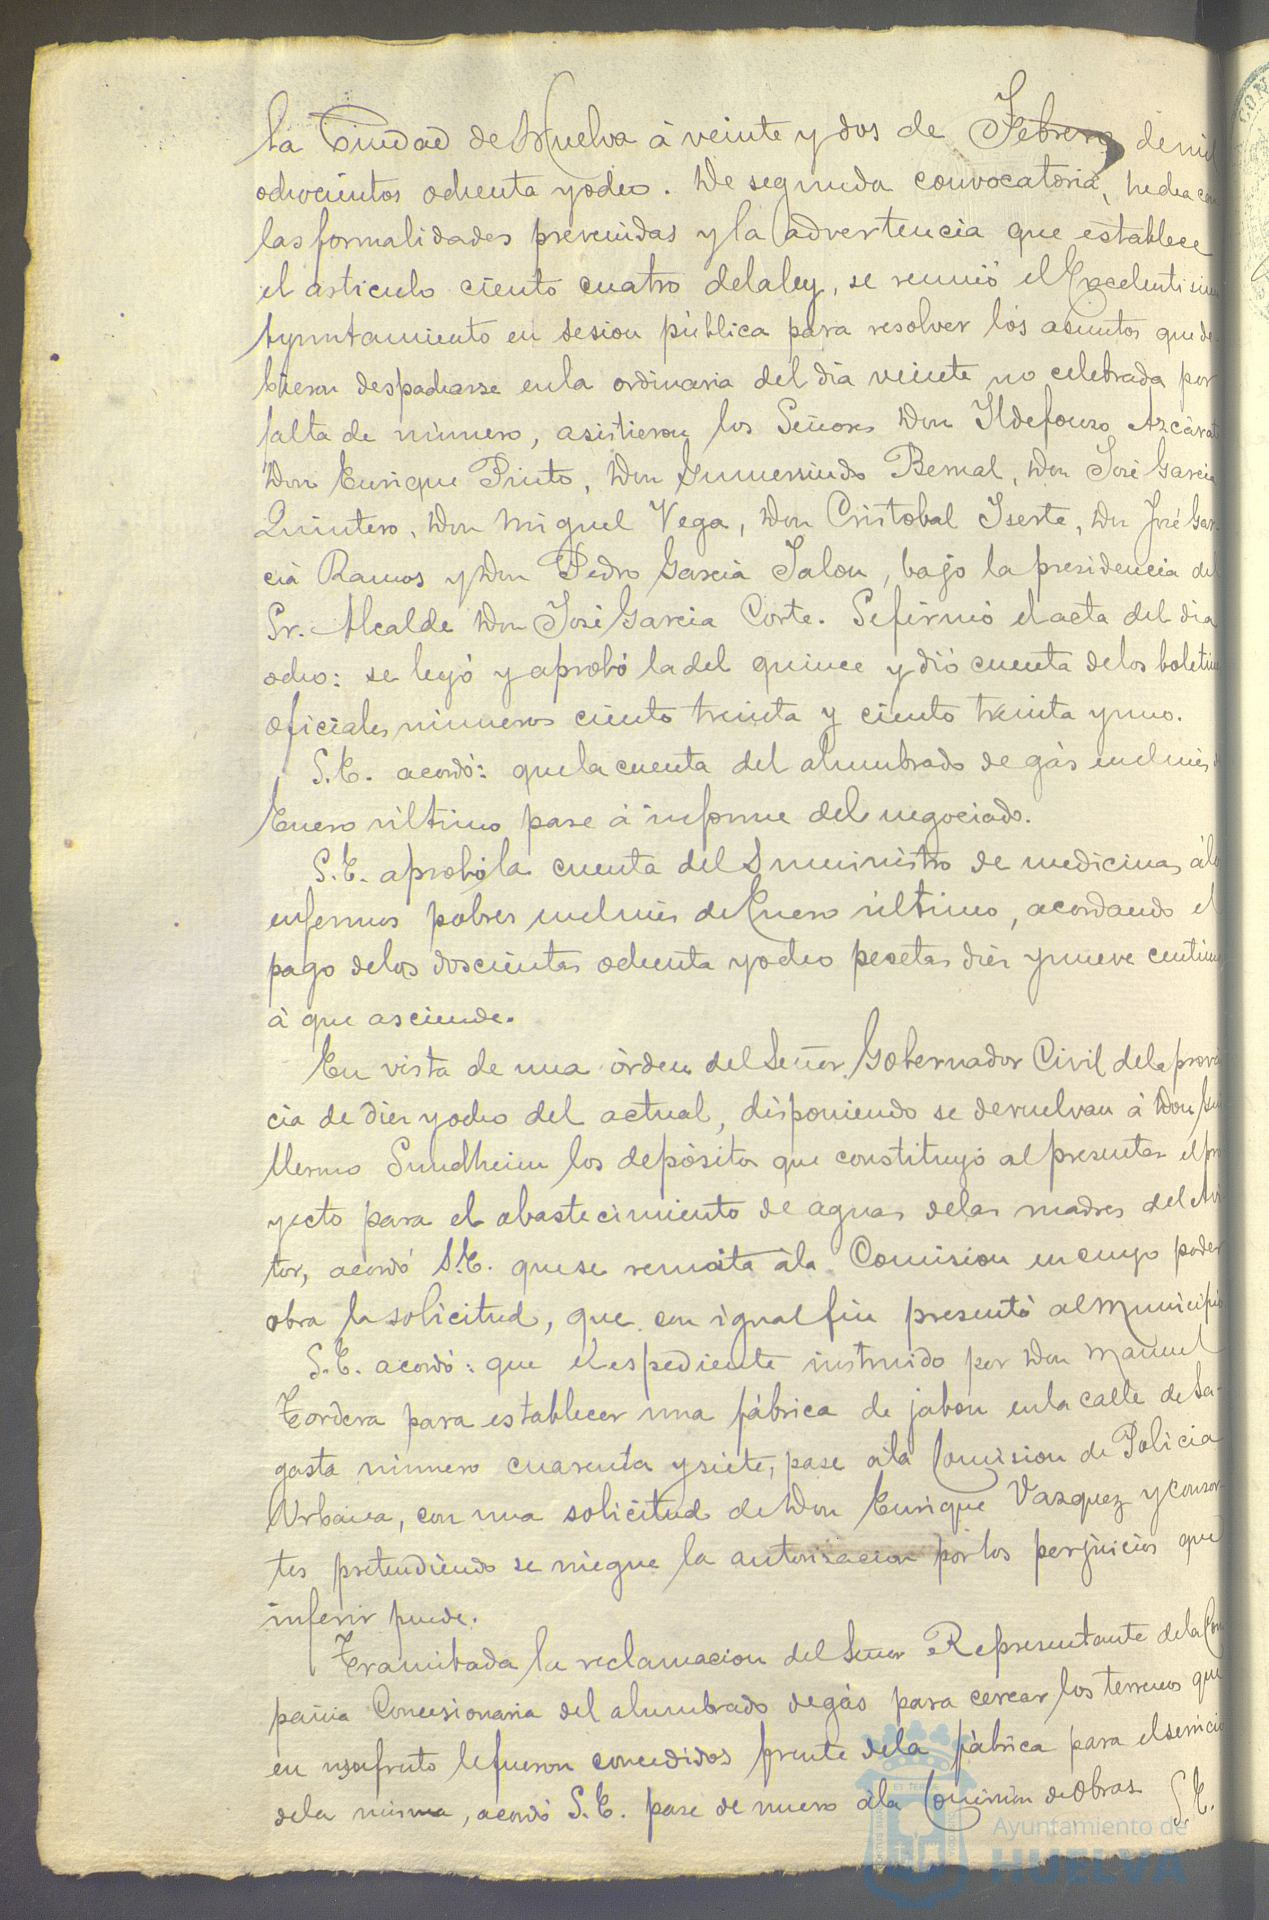 la Ciudad de Huelva á veinte y dos de Febrero de mil
ochocientos ochenta y ocho. De segunda convocatoria, hecha con
las formalidades prevenidas y la advertencia que establece
el articulo ciento cuatro de la ley, se reunió el Excelentisimo
Ayuntamiento en sesion pública para resolver los asuntos que de-
bieron despacharse en la ordinaria del dia veinte no celebrada por
falta de número, asistieron los Señores Don Ildefonso Azcárate
Don Enrique Pinto, Don Gumersindo Bernal, Don José Garcia
Quintero, Don Miguel Vega, Don Cristobal Iserte, Don José Gar-
cia Ramos y Don Pedro Garcia Jalon, bajo la presidencia del
Sr. Alcalde Don José Garcia Corte. Se firmó el acta del dia
ocho: se leyó y aprobó la del quince y dió cuenta de los boletines
oficiales números ciento treinta y ciento treinta y uno.
S.E. acordó: que la cuenta del alumbrado de gás en el mes de
Enero último pase á informe del negociado.
S.E. aprobó la cuenta del Suministro de medicinas á los
enfermos pobres en el mes de Enero último, acordando el
pago de los doscientas ochenta y ocho pesetas diez y nueve centimos
á que asciende.
En vista de una órden del Señor Gobernador Civil de la provin
cia de diez y ocho del actual, disponiendo se devuelvan á Don Gui
llermo Sundheim los depósitos que constituyó al presentar el pro
yecto para el abastecimiento de aguas de las madres del Avi
tor, acordó S.E. que se remita á la Comision en cuyo poder
obra la solicitud, que con igual fin presentó al Municipio
S.E. acordó: que el espediente instruido por Don Manuel
Tordera para establecer una fábrica de jabon en la calle de Sa-
gasta número cuarenta y siete, pase á la Comision de Policia
Urbana, con una solicitud de Don Enrique Vazquez y consor-
tes pretendiendo se niegue la autorizacion por los perjuicios que
inferir puede.
Tramitada la reclamacion del Señor Representante de la Com
pañia Concesionaria del alumbrado de gás para cercar los terrenos que
en usufruto le fueron concedidos frente de la fábrica para el servicio
de la misma, acordó S.E. pase de nuevo á la Comisión de Obras S.E.
Ayuntamiento de
HUELVA